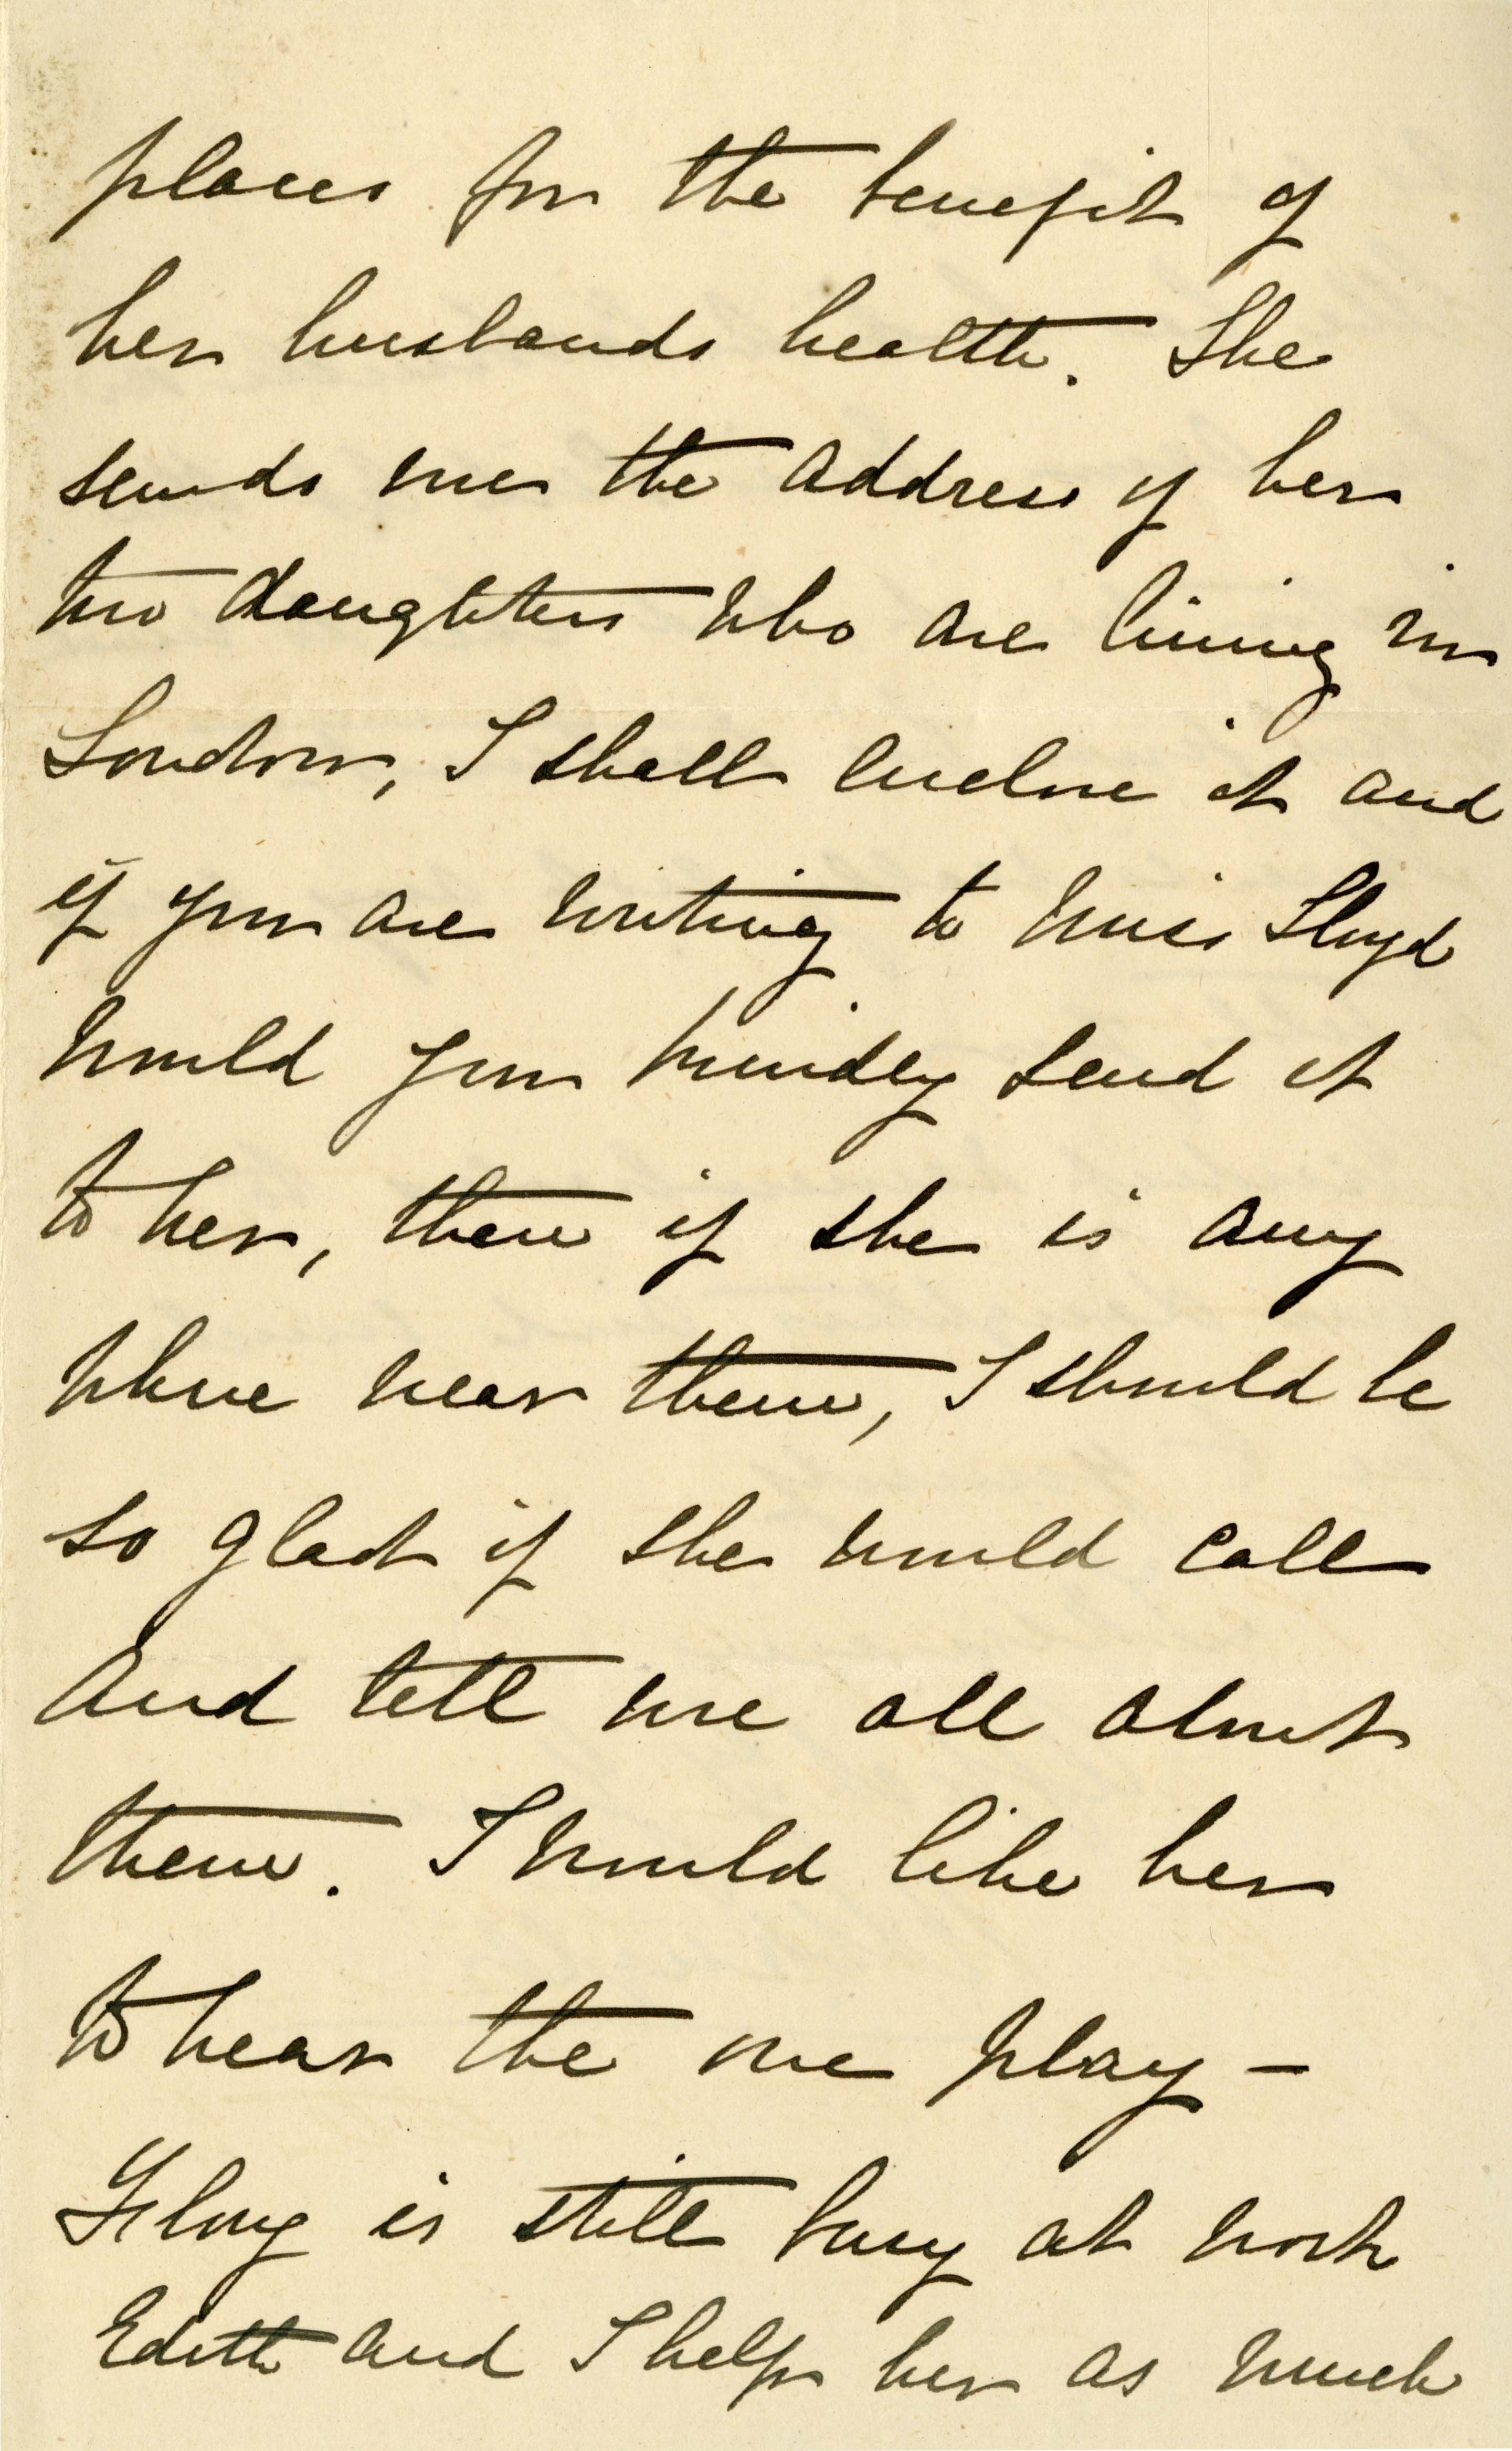 places for the benefit of
her husbands health. She
sends me the address of her
two daughters who are living in
London, I shall enclose it and
if you are writing to Miss Lloyd
would you kindly send it
to her, then if she is any
where near them, I should be
so glad if she would call
and tell me all about
them. I would like her
to hear the one play -
is still busy at work
Edith and I help her as much